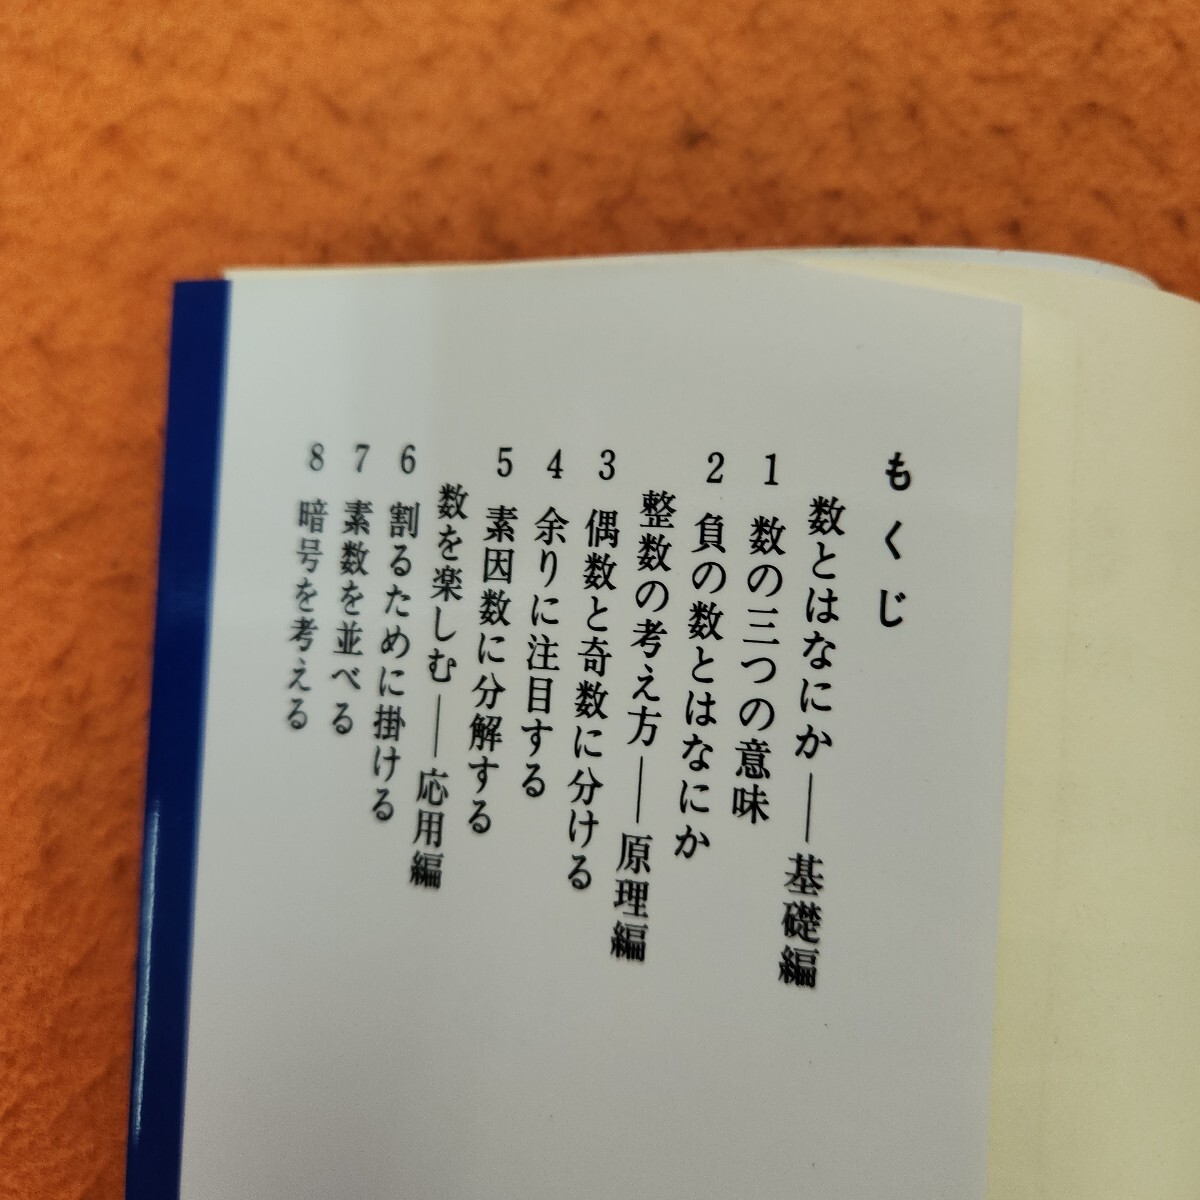 もくじ
数とはなにか――基礎編
1 数の三つの意味
2 負の数とはなにか
整数の考え方――原理編
3 偶数と奇数に分ける
4 余りに注目する
5 素因数に分解する
数を楽しむ――応用編
6 割るために掛ける
7 素数を並べる
8 暗号を考える